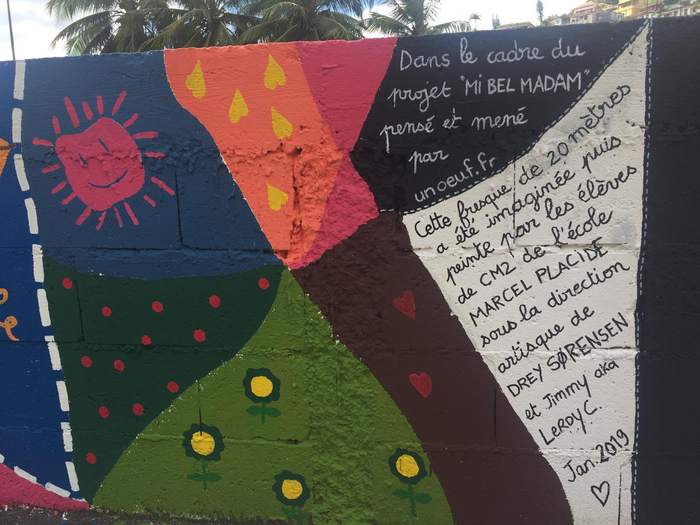 Dans le cadre du
projet "Mi BEL MADAM"
pensé et mené
par
unoeuf.fr
Cette fresque de 20 mètres
a été imaginée puis
peinte par les élèves
de CM2 de l'école
MARCEL PLACIDE
sous la direction
artisque de
DREY SØRENSEN
et Jimmy aka
LeROY C.
Jan. 2019